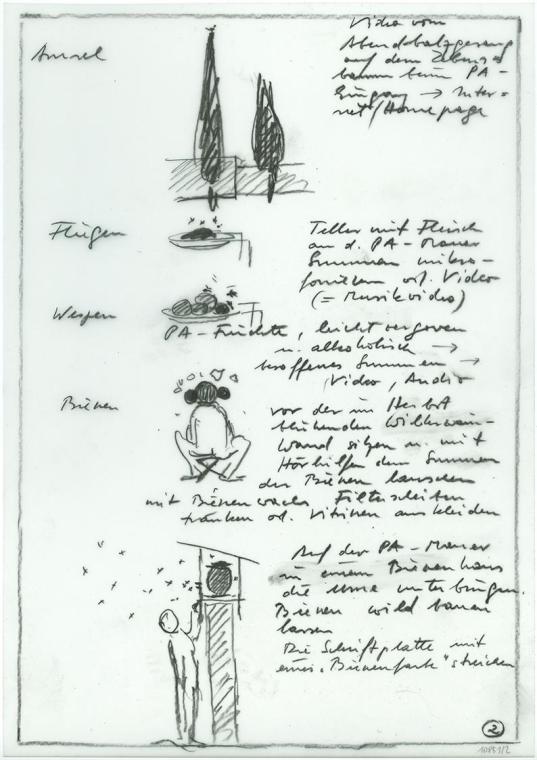 Amsel
Video vom
Abendbalzgesang
auf dem
baum beim PA-
Eingang → Inter=
net/Homepage
Fliegen
Teller mit Fleisch
an d. PA-Mauer
Summen mikro-
fonieren od. Video
(= Musikvideo)
Wespen
PA-Früchte, leicht vergoren
u. alkoholisch →
besoffenes Summen →
Video, Audio
Bienen
vor der im Herbst
blühenden Wilderwein-
wand sitzen u. mit
Hörhilfen dem Summen
der Bienen lauschen
mit Bienenwachs Filterscheiben
tränken od. Vitrinen auskleiden
Auf der PA-Mauer
in einem Bienenhaus
die Urne unterbringen.
Bienen wild bauen
lassen
Die Schriftplatte mit
einer "Bienenfarbe" streichen
2
10851/2